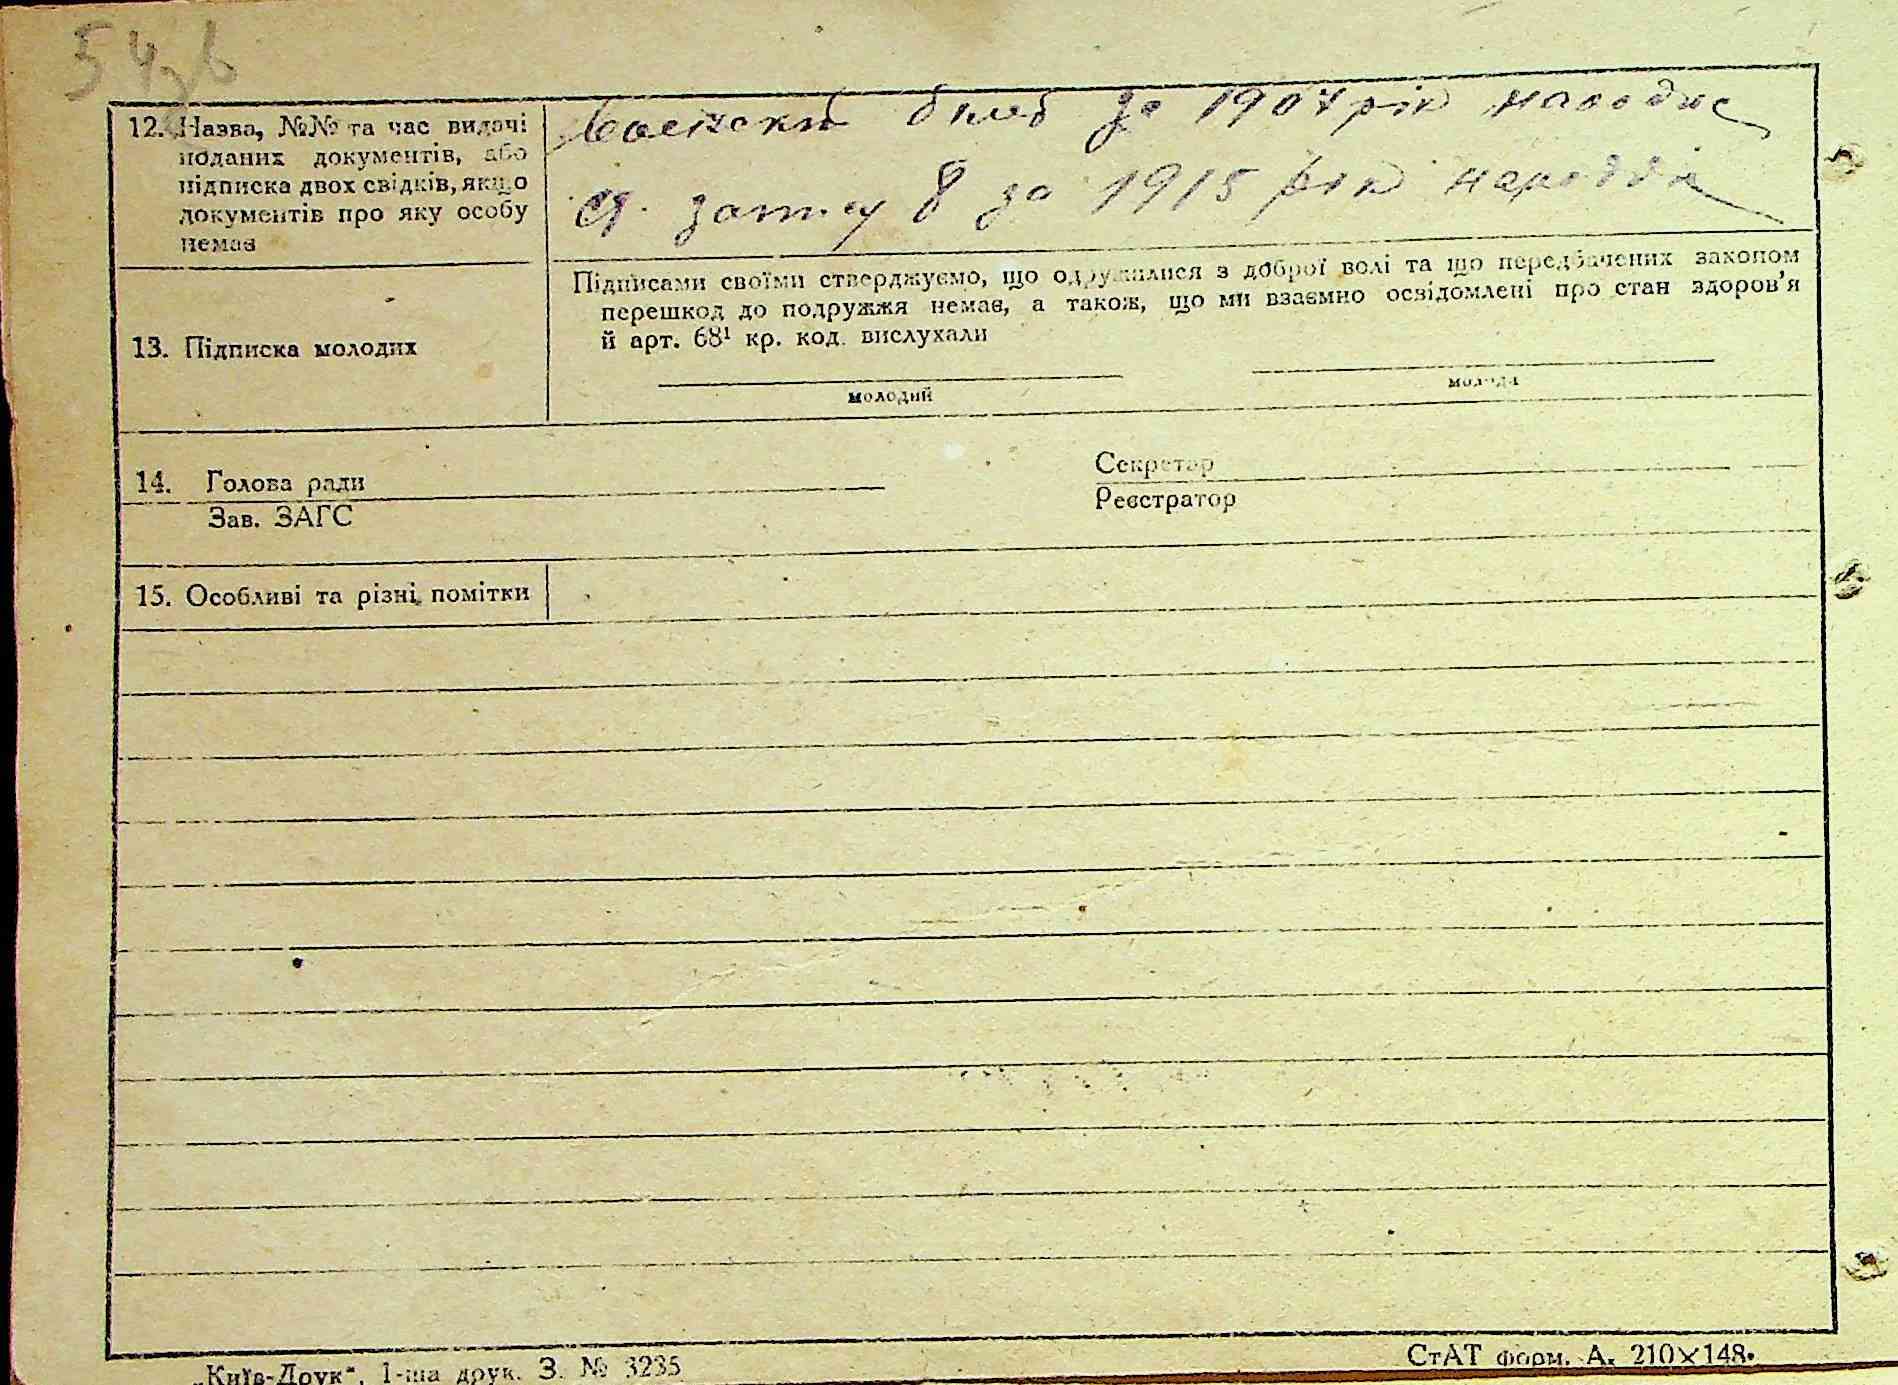 54зв
12. Назва, №№ та час видачі
поданих документів, або
підписка двох свідків, якщо
документів про яку особу
немає
за 1904 рік
8 за 1915 рік
13. Підписка молодих
Підписами своїми стверджуємо, що одружилися з доброї волі та що передбачених законом
перешкод до подружжя немає, а також, що ми взаємно освідомлені про стан здоров'я
й арт. 68¹ кр. код. вислухали
молодий
молода
14. Голова ради
Зав. ЗАГС
Секретар
Реєстратор
15. Особливі та різні помітки
„Київ-Друк", 1-ша друк. З. № 3235
СтАТ форм. А. 210×148.